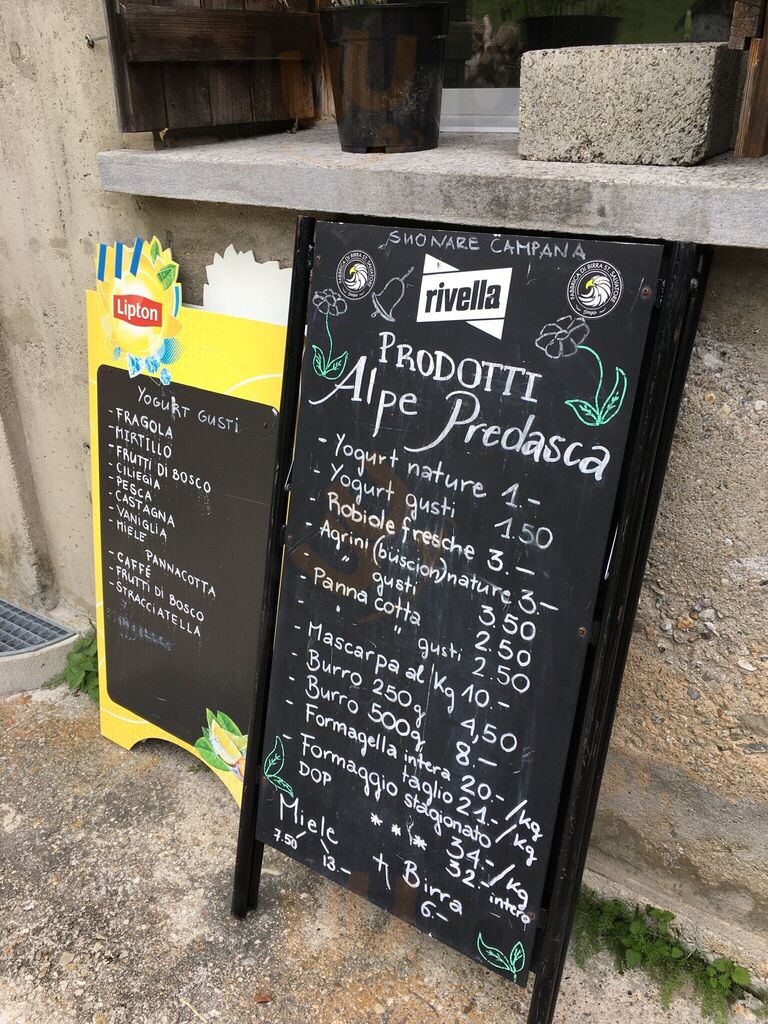 Lipton
YOGURT GUSTI
- FRAGOLA
- MIRTILLO
- FRUTTI DI BOSCO
- CILIEGIA
- PESCA
- CASTAGNA
- VANIGLIA
- MIELE
PANNACOTTA
- CAFFÉ
- FRUTTI DI BOSCO
- STRACCIATELLA
SUONARE CAMPANA
rivella
PRODOTTI
Alpe Predasca
- Yogurt nature 1.-
- Yogurt gusti 1.50
- Robiole fresche 3.-
- Agrini (büscion) nature 3-
- " gusti 3.50
- Panna cotta 2.50
- " " gusti 2.50
- Mascarpa al Kg 10.-
- Burro 250g 4,50
- Burro 500g 8.-
- Formagella intera 20.-/kg
taglio 21.-/kg
- Formaggio stagionato 34.-/kg
DOP 32.- intero
Miele
7.50 13.-
Birra
6.-